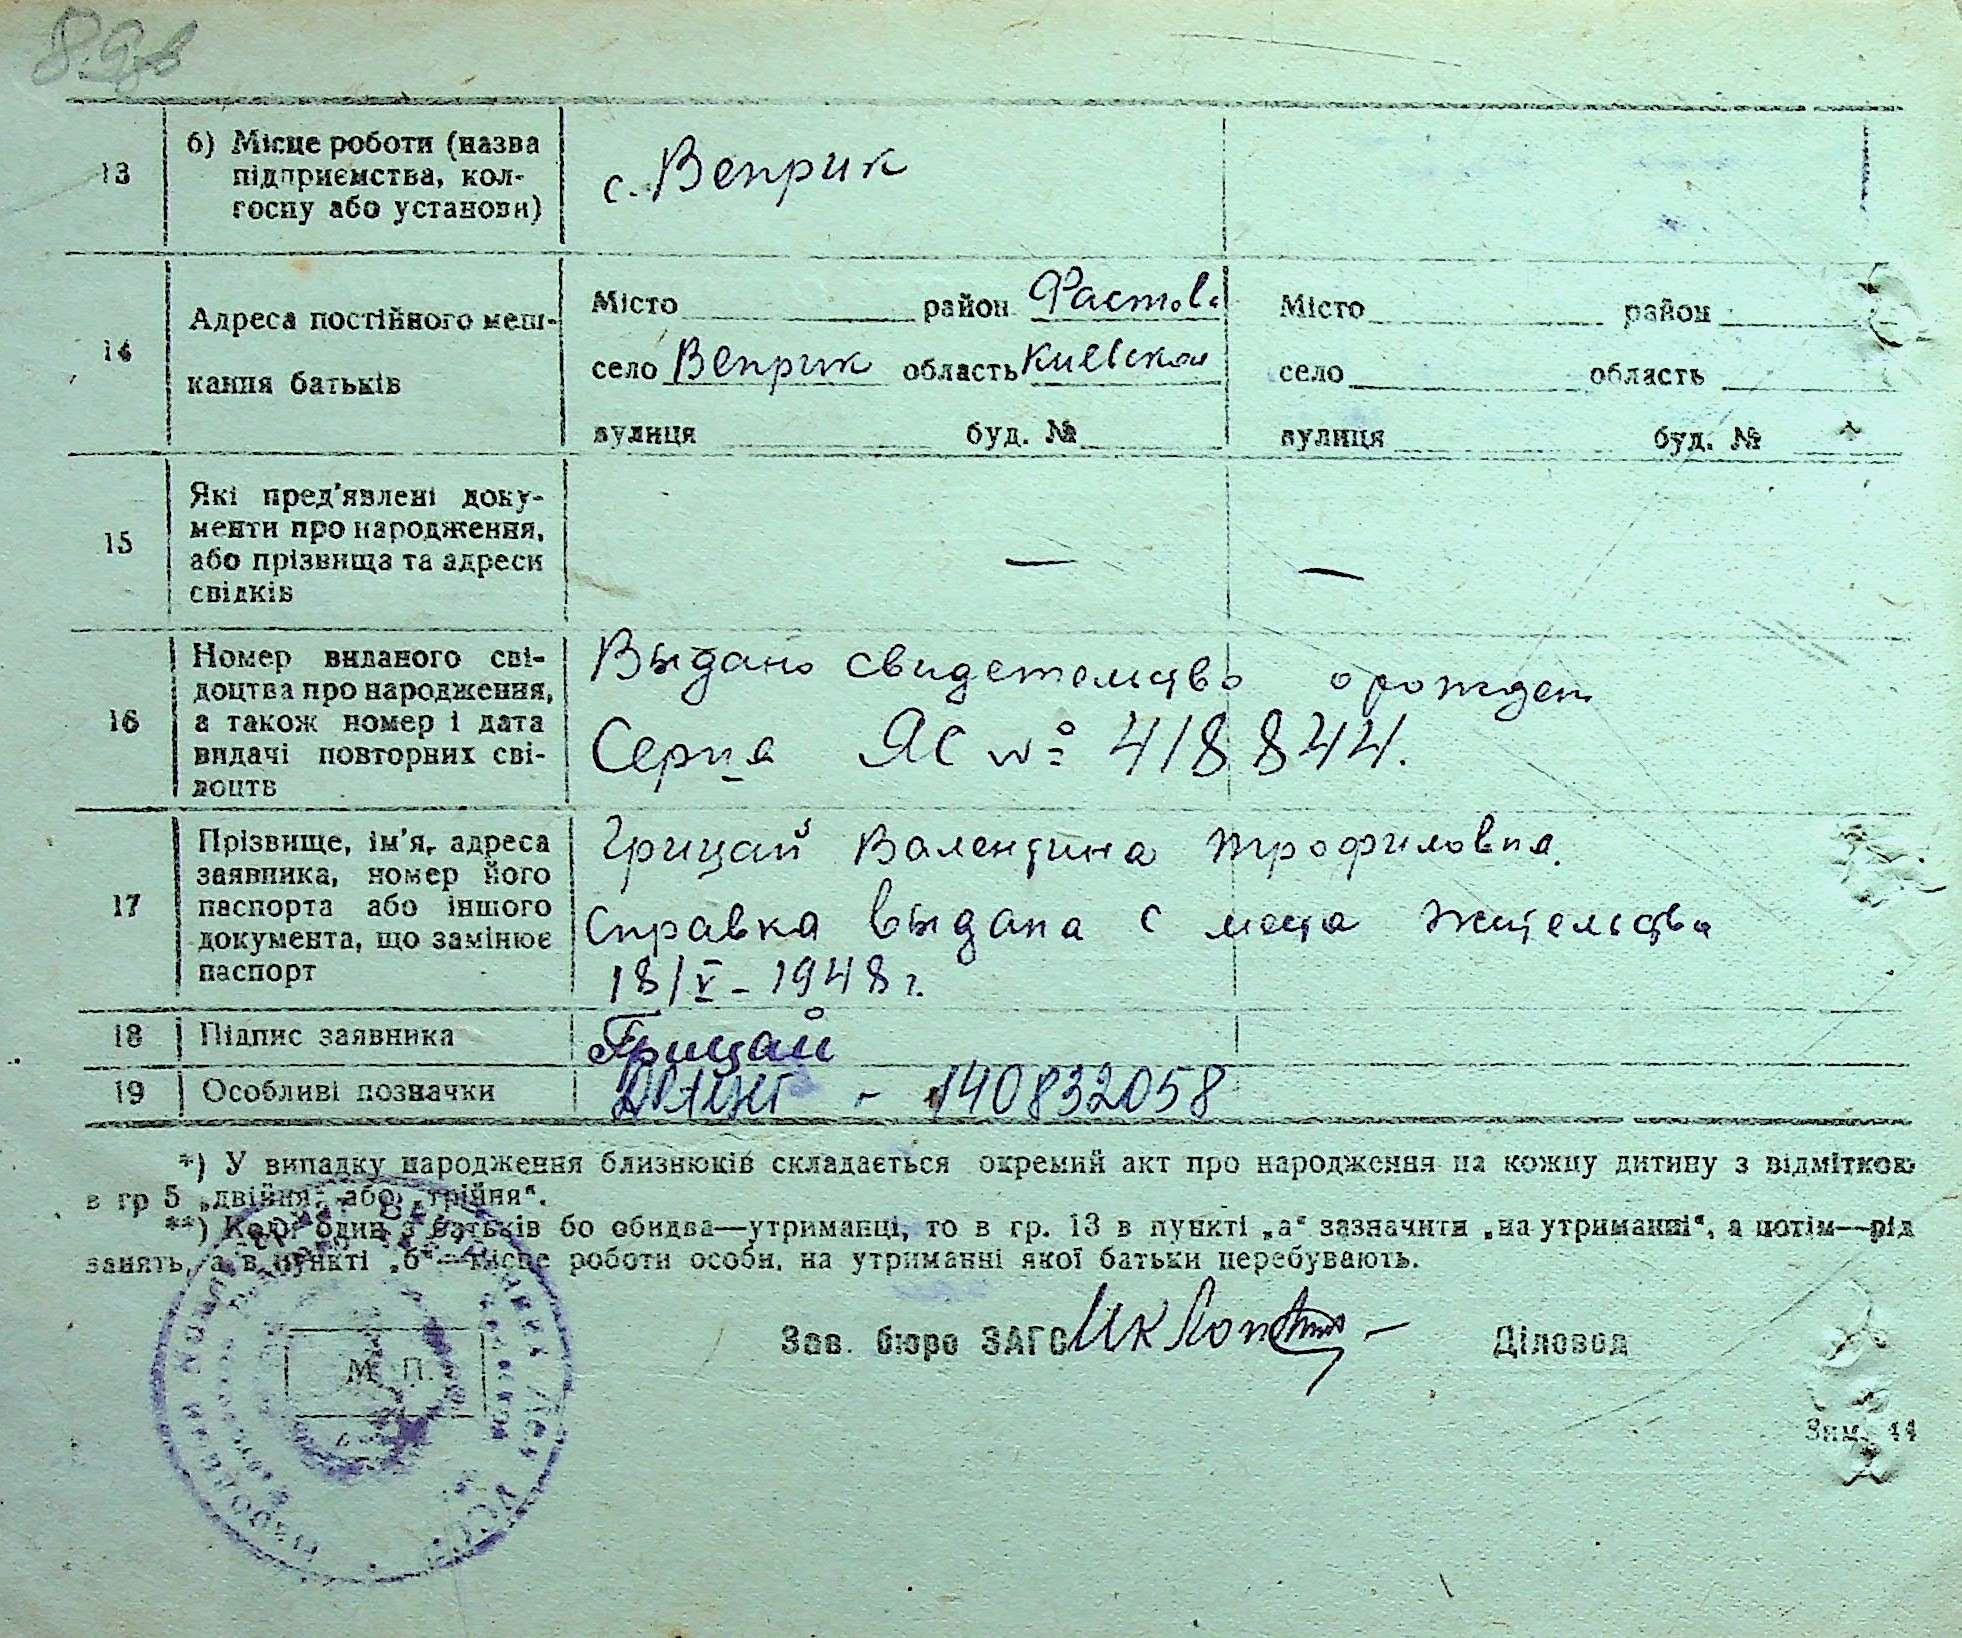 13
б) Місце роботи (назва
підприємства, кол-
госпу або установи)
с. Веприк
14
Адреса постійного меш-
кання батьків
Місто район Фастов.
село Веприк область Киевская
вулиця буд. №
Місто район
село область
вулиця буд. №
15
Які пред'явлені доку-
менти про народження,
або прізвища та адреси
свідків
— —
16
Номер виданого сві-
доцтва про народження,
а також номер і дата
видачі повторних сві-
доцтв
Выдано свидетельство о рожден
Серия ЯС № 418844.
17
Прізвище, ім'я, адреса
заявника, номер його
паспорта або іншого
документа, що замінює
паспорт
Грицай Валентина Трофимовна.
Справка выдана с места жительства
18/V - 1948 г.
18
Підпис заявника
Грицай
19
Особливі позначки
- 140832058
*) У випадку народження близнюків складається окремий акт про народження на кожну дитину з відміткою
в гр 5 „двійня“ або „трійня“.
**) Коли один з батьків бо обидва—утриманці, то в гр. 13 в пункті „а“ зазначити „на утриманні“, а потім—рід
занять, а в пункті „б“—місце роботи особи, на утриманні якої батьки перебувають.
Зав. бюро ЗАГС Діловод
М. П.